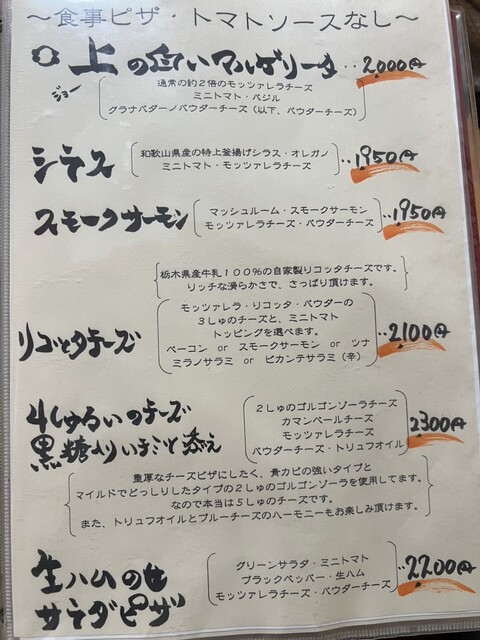 ～食事ピザ・トマトソースなし～
上の白いマルゲリータ‥2,000円
ジョー
通常の約２倍のモッツァレラチーズ
ミニトマト・バジル
グラナパダーノパウダーチーズ（以下、パウダーチーズ）
シラス
和歌山県産の特上釜揚げシラス・オレガノ
ミニトマト・モッツァレラチーズ
‥1950円
スモークサーモン
マッシュルーム・スモークサーモン
モッツァレラチーズ・パウダーチーズ
‥1950円
栃木県産牛乳１００％の自家製リコッタチーズです。
リッチな滑らかさで、さっぱり頂けます。
リコッタチーズ
モッツァレラ・リコッタ・パウダーの
３しゅのチーズと、ミニトマト
トッピングを選べます。
ベーコン or スモークサーモン or ツナ
ミラノサラミ or ピカンテサラミ（辛）
‥2100円
4しゅるいのチーズ
黒糖
添え
２しゅのゴルゴンゾーラチーズ
カマンベールチーズ
モッツァレラチーズ
パウダーチーズ・トリュフオイル
2300円
重厚なチーズピザにしたく、青カビの強いタイプと
マイルドでどっしりしたタイプの２しゅのゴルゴンゾーラを使用してます。
なので本当は５しゅのチーズです。
また、トリュフオイルとブルーチーズのハーモニーもお楽しみ頂けます。
生ハムの
サラダピザ
グリーンサラダ・ミニトマト
ブラックペッパー・生ハム
モッツァレラチーズ・パウダーチーズ
‥2200円